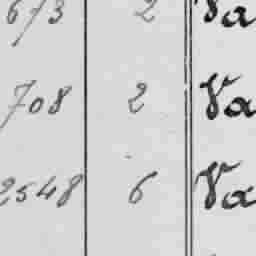 673 2 Va
708 2 Va
2548 6 Va